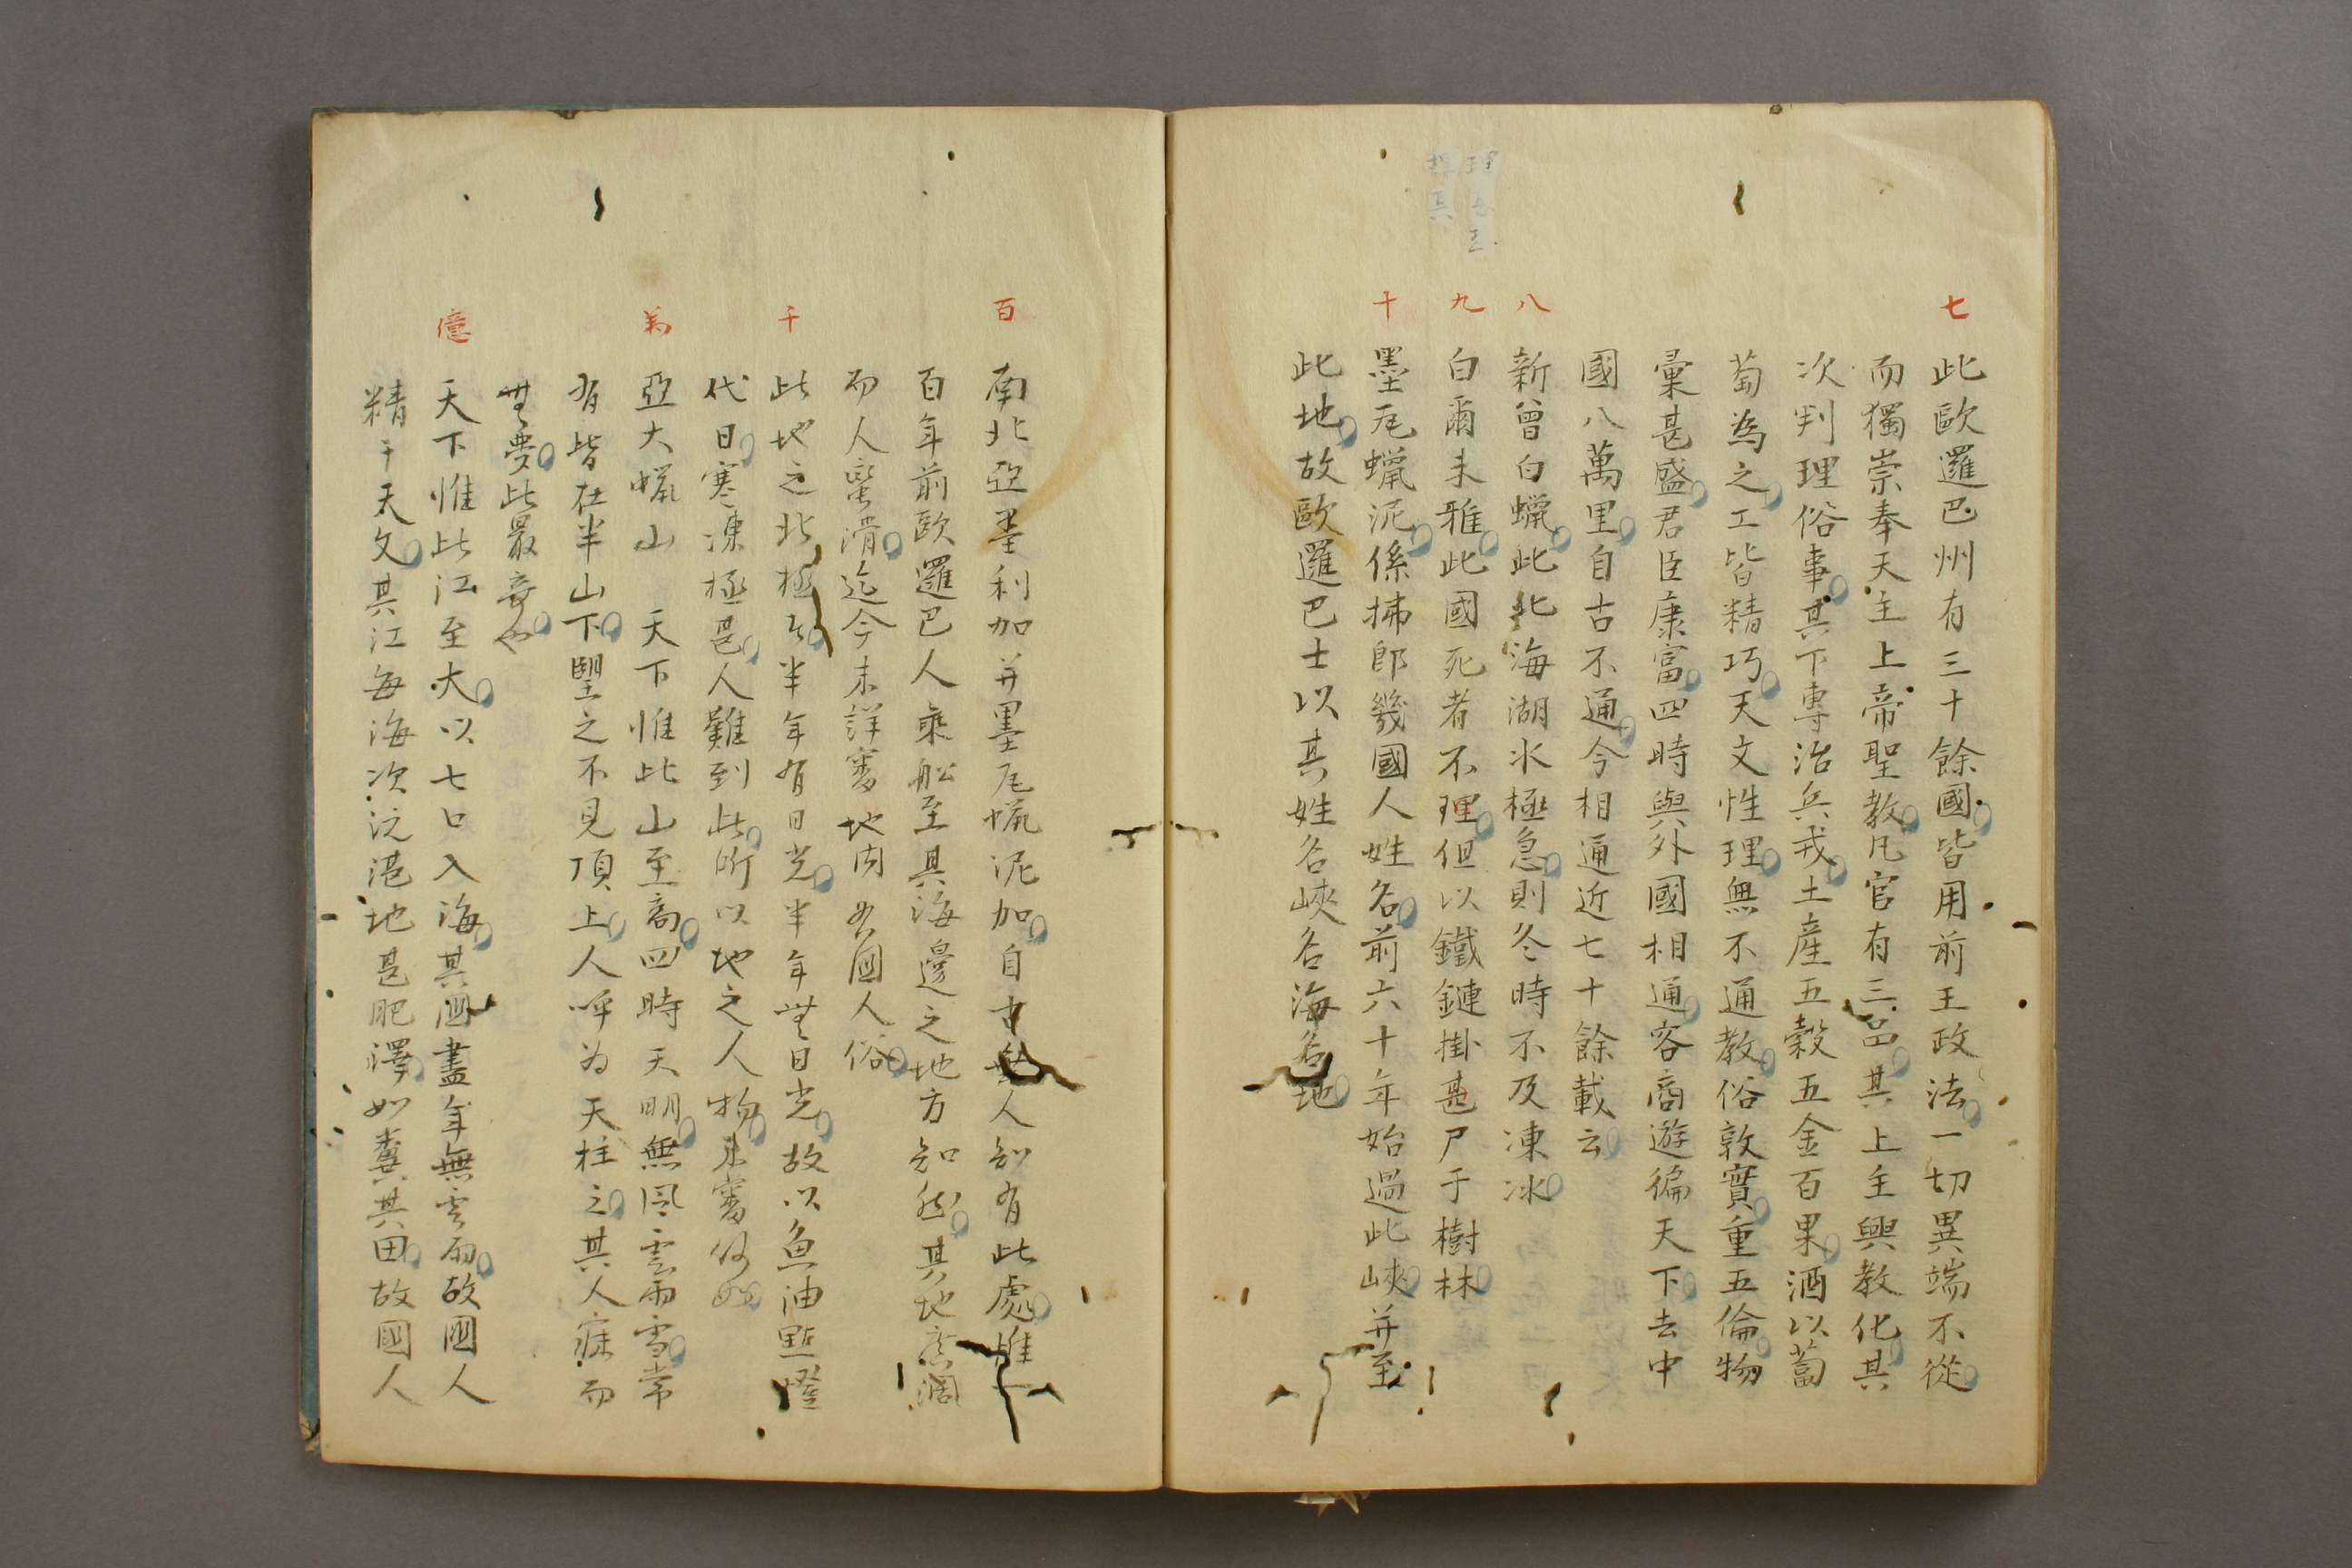 七
此歐邏巴州有三十餘國皆用前王政法一切異端不從
而獨崇奉天主上帝聖教凡官有三品其上主興教化其
次判理俗事其下專治兵戎土産五穀五金百果酒以葡
萄為之工皆精巧天文性理無不通教俗敦實重五倫物
彙甚盛君臣康富四時與外國相通客商遊徧天下去中
國八萬里自古不通今相通近七十餘載云
八
新曾白蠟此北海湖氷極急則冬時不及凍冰
九
白爾未雅此國死者不理但以鐵鏈掛甚尸于樹林
十
墨尾蠟泥係拂郎幾國人姓名前六十年始過此峽并至
此地故歐邏巴士以其姓名峽名海名地
百
南北亞墨利加并墨尾蠟泥加自古無人知有此處惟一
百年前歐邏巴人乘船至其海邊之地方知然其地廣濶
而人蛮滑迄今未詳審地内各國人俗
千
此地之北極者半年有日光半年無日光故以魚油點燈
代日寒凍極甚人難到此所以地之人物未審何如
萬
亞大蠟山 天下惟此山至高四時天明無風雲雨雪常
有皆在半山下望之不見頂上人呼為天柱之其人寐而
無夢此最竒也
億
天下惟此江至大以七口入海其國盡年無雲雨故國人
精于天文其江每海次泛港地甚肥澤如糞其田故國人